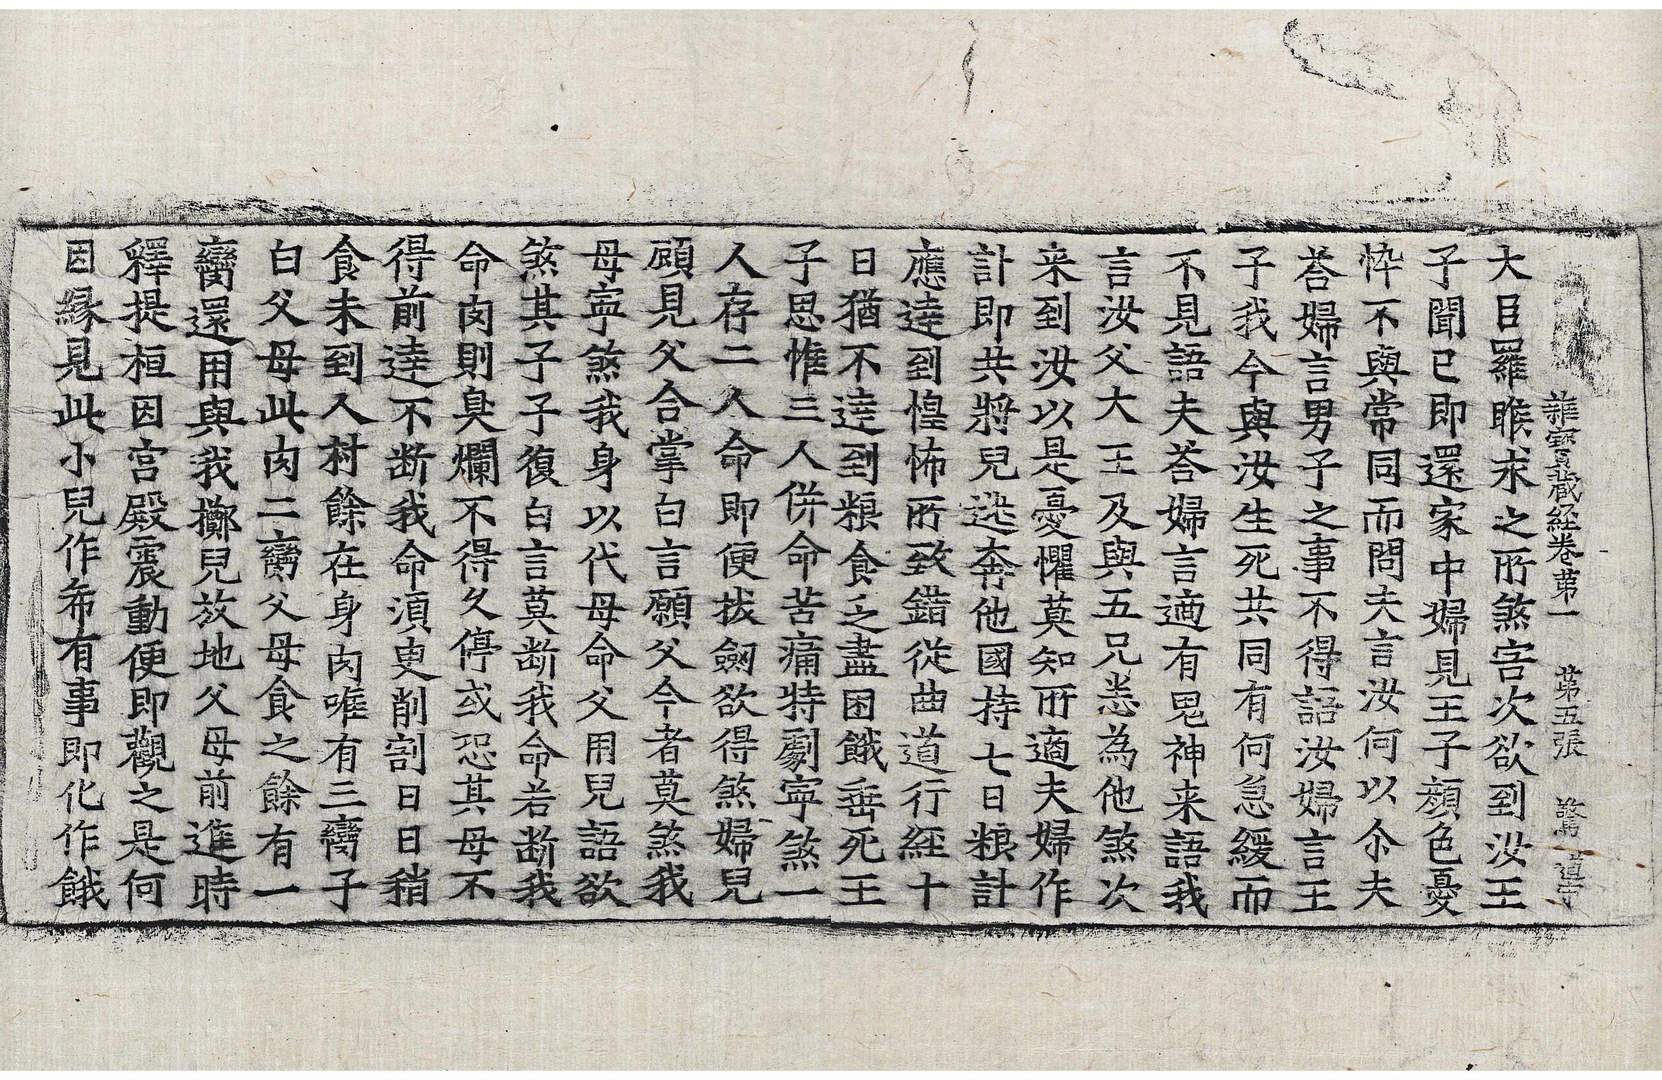 雜寶藏經卷第一　第五張　驚　道守
大臣羅睺求之所煞害次欲到汝王
子聞已即還家中婦見王子顏色憂
悴不與常同而問夫言汝何以尒夫
荅婦言男子之事不得語汝婦言王
子我今與汝生死共同有何急緩而
不見語夫荅婦言適有鬼神来語我
言汝父大王及與五兄悉為他煞次
来到汝以是憂懼莫知所適夫婦作
計即共將兒逃奔他國持七日粮計
應達到惶怖所致錯從曲道行經十
日猶不達到粮食乏盡困餓垂死王
子思惟三人併命苦痛特劇寧煞一
人存二人命即便拔劒欲得煞婦兒
顧見父合掌白言願父今者莫煞我
母寧煞我身以代母命父用兒語欲
煞其子子復白言莫断我命若断我
命肉則臭爛不得久停或恐其母不
得前達不断我命須更削割日日稍
食未到人村餘在身肉唯有三臠子
白父母此肉二臠父母食之餘有一
臠還用與我擲兒放地父母前進時
釋提桓因宮殿震動便即觀之是何
因緣見此小兒作希有事即化作餓